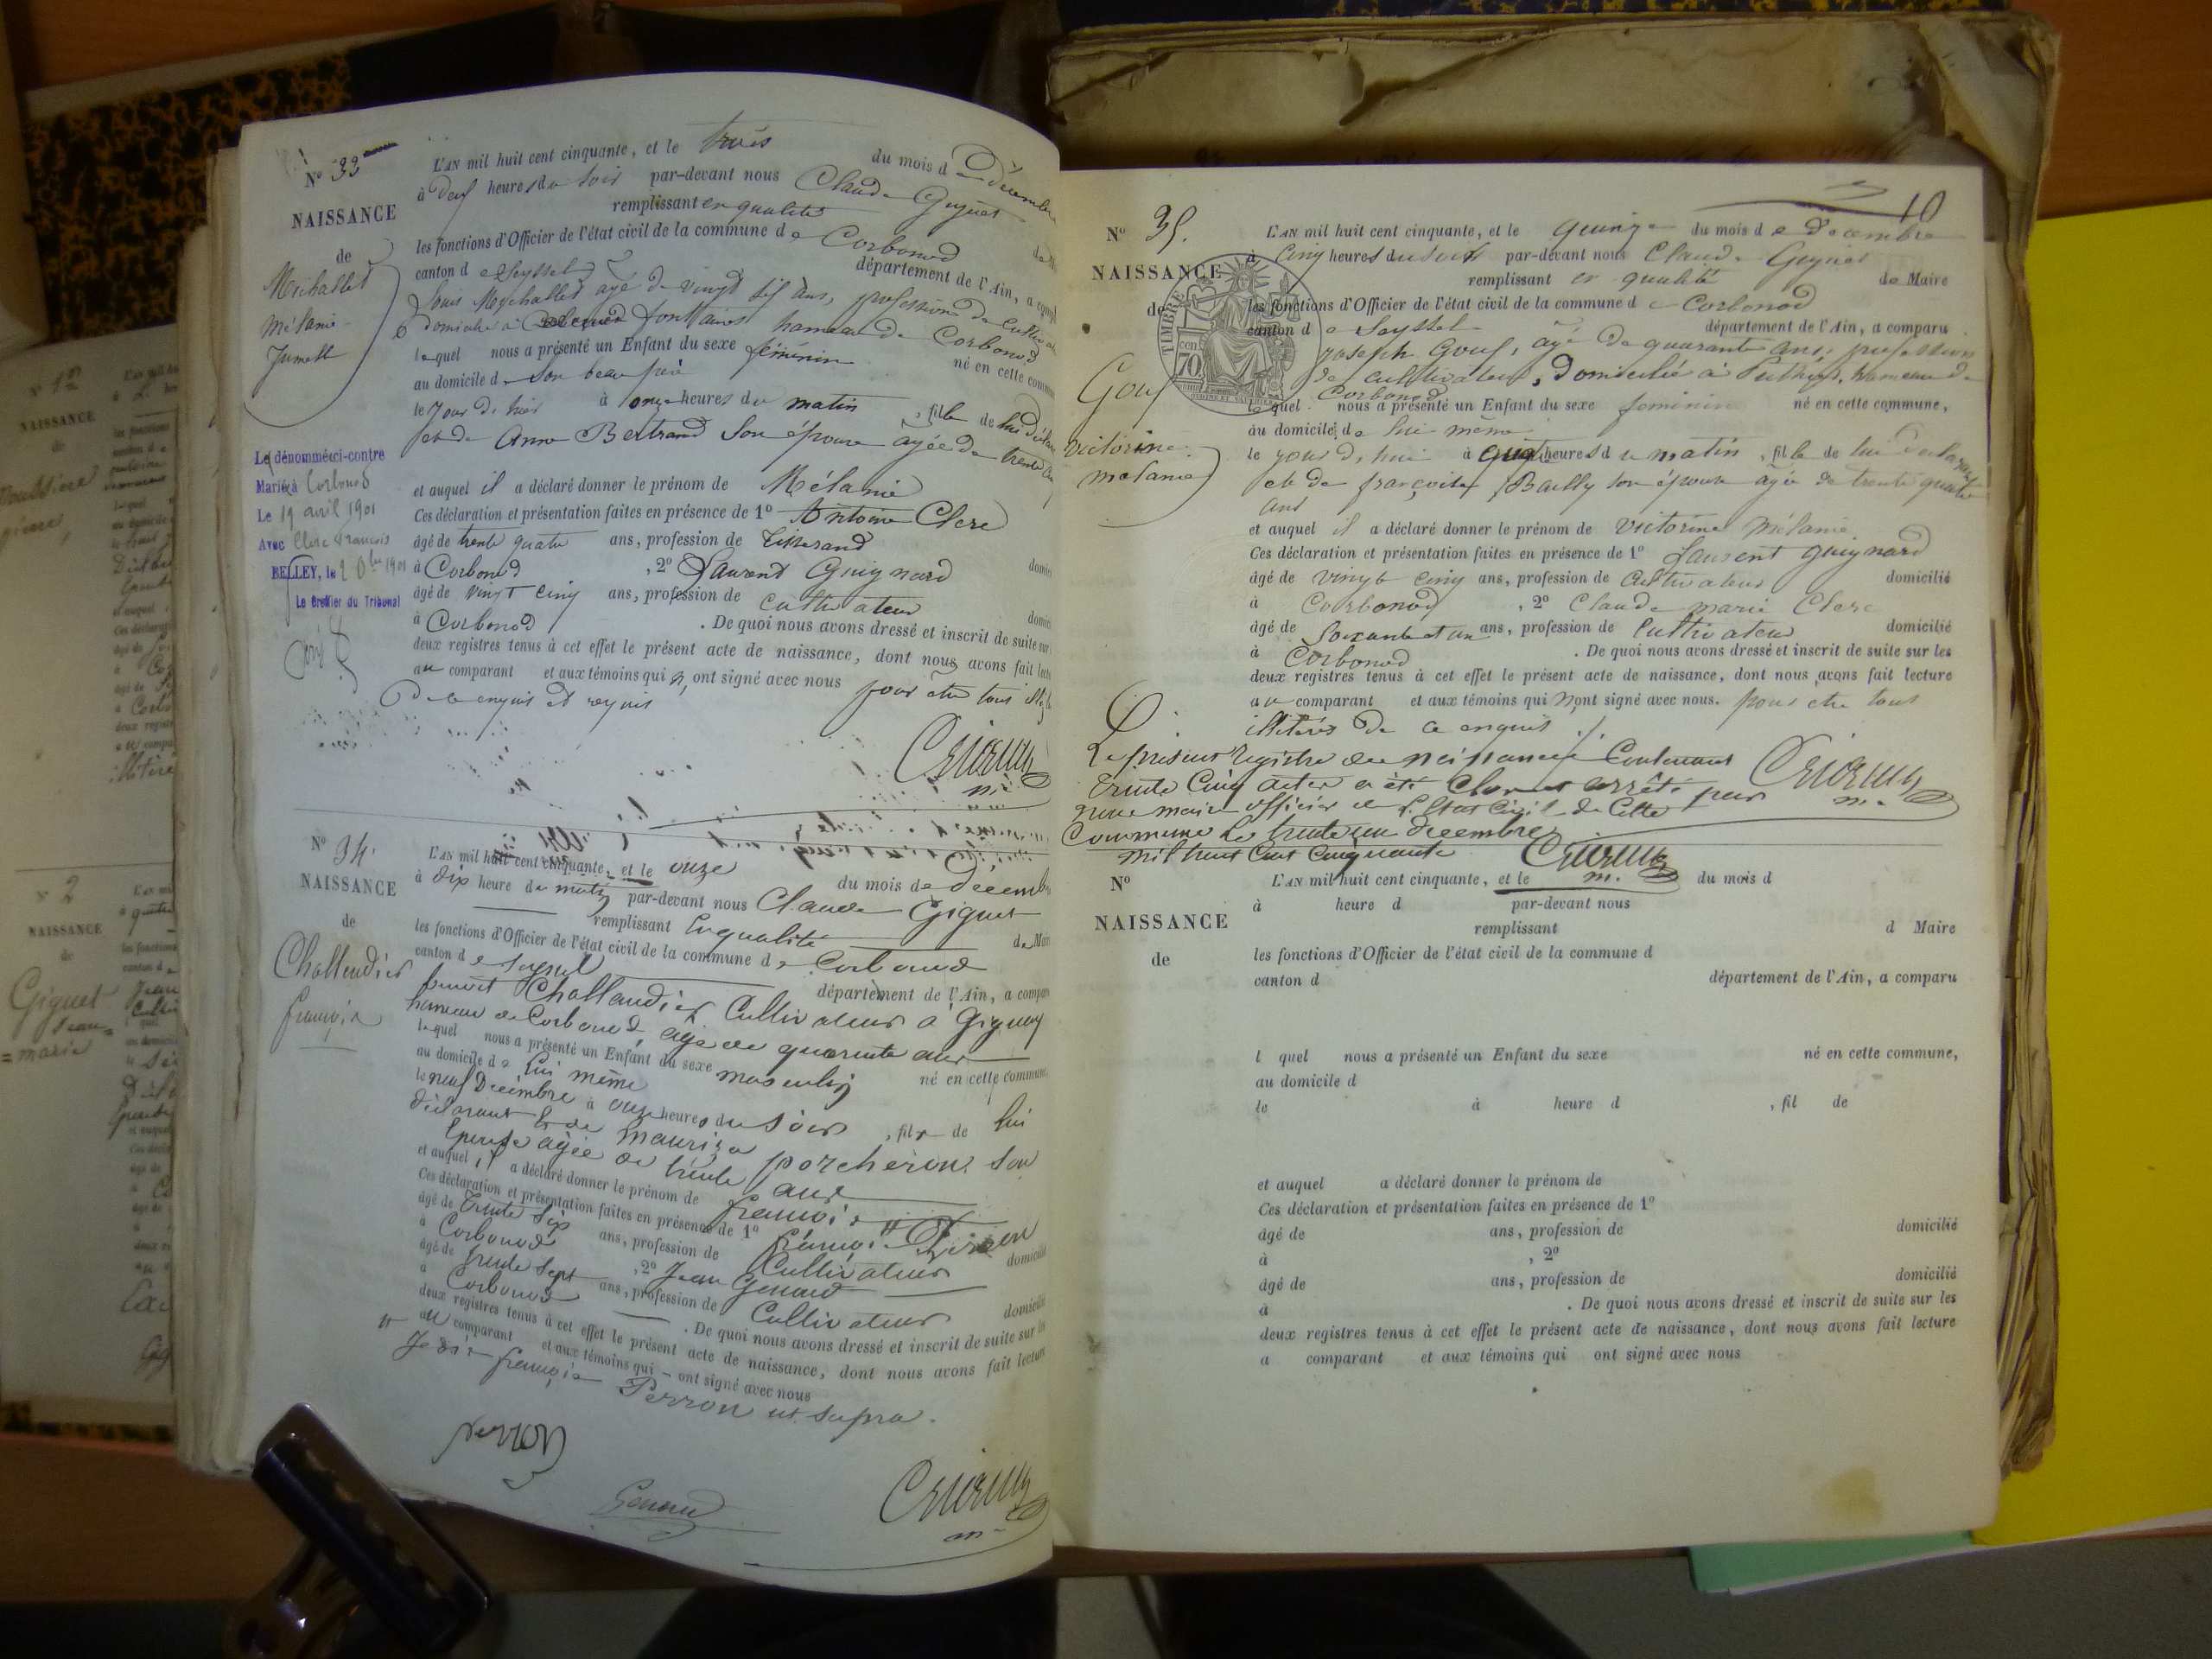 N° 33
NAISSANCE
de
Michallet
Mélanie
Jumelle
Le dénommé ci-contre
Marié à Corbonod
Le 19 avril 1901
Avec Clerc François
BELLEY, le 1901
Le Greffier du Tribunal
L'AN mil huit cent cinquante, et le trois du mois de décembre
à deux heures du soir par-devant nous Claude Giguet
remplissant en qualité
les fonctions d'Officier de l'état civil de la commune de Corbonod
canton de Seyssel département de l'Ain, a
Louis Michallet âgé de vingt six ans, profession de
domicilié à fontaines hameau de Corbonod
lequel nous a présenté un Enfant du sexe féminin né en cette
au domicile de son beau père
le jour d'hier à onze heures du matin, fille de lui
et de Anne Bertrand son épouse âgée de trente
et auquel il a déclaré donner le prénom de Mélanie
Ces déclaration et présentation faites en présence de 1° Antoine Clerc
âgé de trente quatre ans, profession de tisserand
à Corbonod, 2° Laurent Guignard
âgé de vingt cinq ans, profession de cultivateur
à Corbonod. De quoi nous avons dressé et inscrit de suite sur
deux registres tenus à cet effet le présent acte de naissance, dont nous avons fait
au comparant et aux témoins qui n'ont signé avec nous pour être tous
de ce enquis et requis
N° 34.
NAISSANCE
de
Challendier
françois
L'AN mil huit cent cinquante, et le onze du mois de Décembre
à dix heure du matin par-devant nous Claude Giguet
remplissant En qualité de
les fonctions d'Officier de l'état civil de la commune de Corbonod
canton de Seyssel département de l'Ain, a
benoit Challandier Cultivateur à Gignez
hameau de Corbonod, âgé de quarente ans
lequel nous a présenté un Enfant du sexe masculin né en cette commune
au domicile de lui même
le neuf Décembre à onze heures du soir, fils de lui
déclarant et de Mauriza porcheron son
Epouse âgée de trente ans
et auquel il a déclaré donner le prénom de françois
Ces déclaration et présentation faites en présence de 1° françois
âgé de trente six ans, profession de Cultivateur
à Corbonod, 2° Jean Genand
âgé de trente sept ans, profession de Cultivateur
à Corbonod. De quoi nous avons dressé et inscrit de suite sur les
deux registres tenus à cet effet le présent acte de naissance, dont nous avons fait lecture
au comparant et aux témoins qui ont signé avec nous
françois Perron ut supra.
Perron
Genand
10
N° 35.
NAISSANCE
de
Gouf
victorine
mélanie
TIMBRE
70
L'AN mil huit cent cinquante, et le quinze du mois de Decembre
à Cinq heures du soir par-devant nous Claude Giguet
remplissant en qualité de Maire
les fonctions d'Officier de l'état civil de la commune de Corbonod
canton de Seyssel département de l'Ain, a comparu
joseph Gouf, âgé de quarante ans, profession
de cultivateur, domicilié à hameau de
Corbonod
lequel nous a présenté un Enfant du sexe feminin né en cette commune,
au domicile de lui même
le jour d'hui à heures du matin, fille de lui déclarant
et de françoise Bailly son épouse âgée de trente quatre
ans
et auquel il a déclaré donner le prénom de victorine Mélanie
Ces déclaration et présentation faites en présence de 1° Laurent guignard
âgé de vingt cinq ans, profession de Cultivateur domicilié
à Corbonod, 2° Claude marie Clerc
âgé de soixante et un ans, profession de Cultivateur domicilié
à Corbonod. De quoi nous avons dressé et inscrit de suite sur les
deux registres tenus à cet effet le présent acte de naissance, dont nous avons fait lecture
au comparant et aux témoins qui n'ont signé avec nous. pour etre tous
illiterés de ce enquis
Le présent registre de naissance Contenant
trente Cinq actes a été Clos et arrêté par
nous maire officier de l'Etat Civil de Cette
Commune Le trente un Decembre
mil huit Cent Cinquante
N°
NAISSANCE
de
L'AN mil huit cent cinquante, et le du mois d
à heure d par-devant nous
remplissant d Maire
les fonctions d'Officier de l'état civil de la commune d
canton d département de l'Ain, a comparu
l quel nous a présenté un Enfant du sexe né en cette commune,
au domicile d
le à heure d , fil de
et auquel a déclaré donner le prénom de
Ces déclaration et présentation faites en présence de 1°
âgé de ans, profession de domicilié
à , 2°
âgé de ans, profession de domicilié
à . De quoi nous avons dressé et inscrit de suite sur les
deux registres tenus à cet effet le présent acte de naissance, dont nous avons fait lecture
a comparant et aux témoins qui ont signé avec nous
N° 2
NAISSANCE
de
Giguet
Jean=
=marie